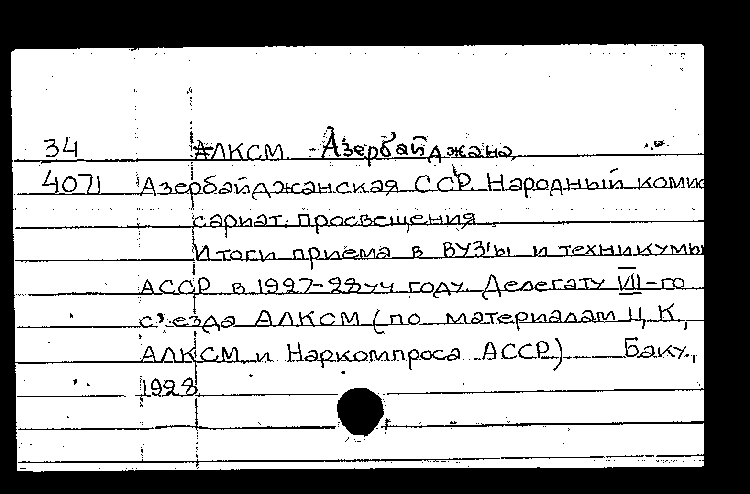 34 АЛКСМ Азербайджана.
4071 Азербайджанская ССР. Народный комис
сариат. просвещения.
Итоги приема в ВУЗ'ы и техникумы
АССР в 1927-28 уч году. Делегату VII-го
с'езда АЛКСМ (по материалам Ц. К.,
АЛКСМ и Наркомпроса АССР.) Баку,
1928